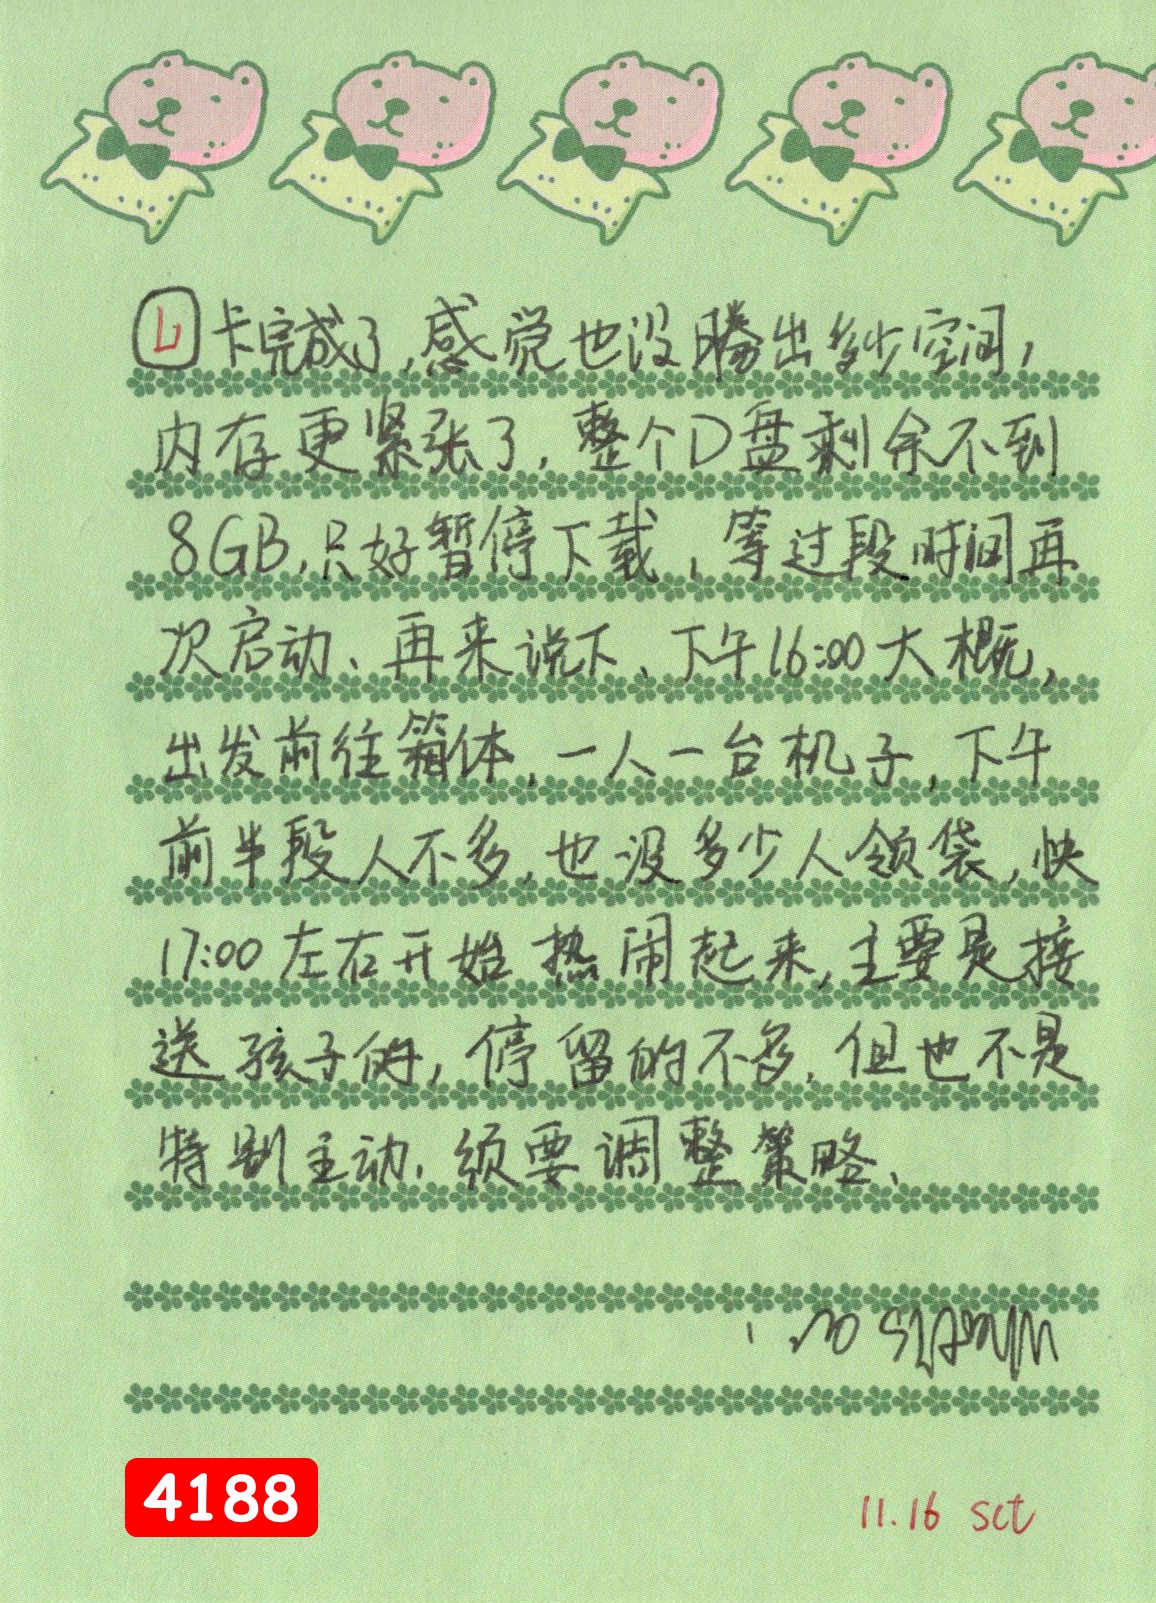 卡完成了,感觉也没腾出多少空间,
内存更紧张了,整个D盘剩余不到
8GB,只好暂停下载,等过段时间再
次启动、再来说下、下午16:00大概,
出发前往箱体,一人一台机子,下午
前半段人不多,也没多少人领袋,快
17:00左右开始热闹起来,主要是接
送孩子的,停留的不多,但也不是
特别主动,须要调整策略、
4188
11.16 sct